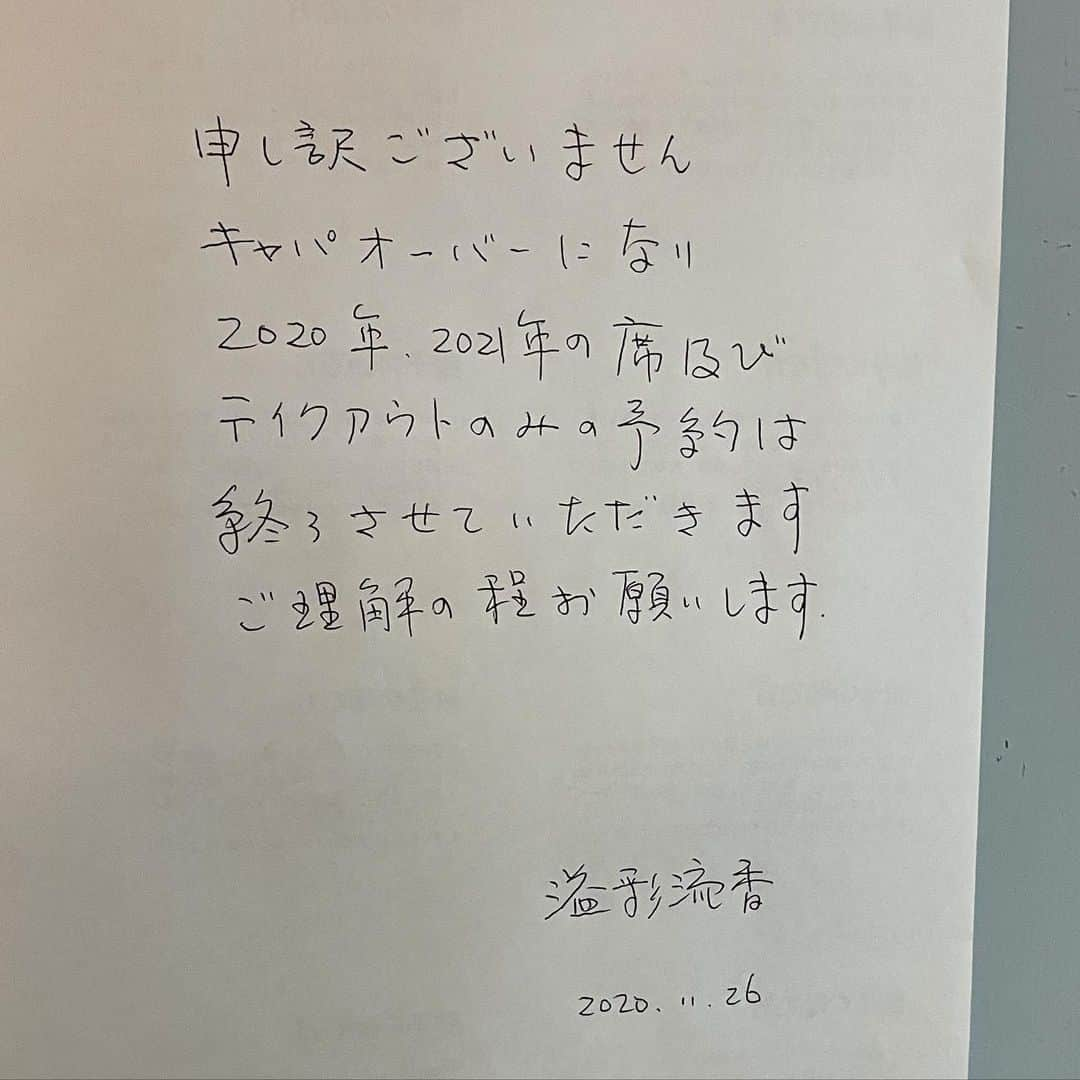 申し訳ございません
キャパオーバーになり
2020年、2021年の席及び
テイクアウトのみの予約は
終了させていただきます
ご理解の程お願いします.
溢彩流香
2020.11.26